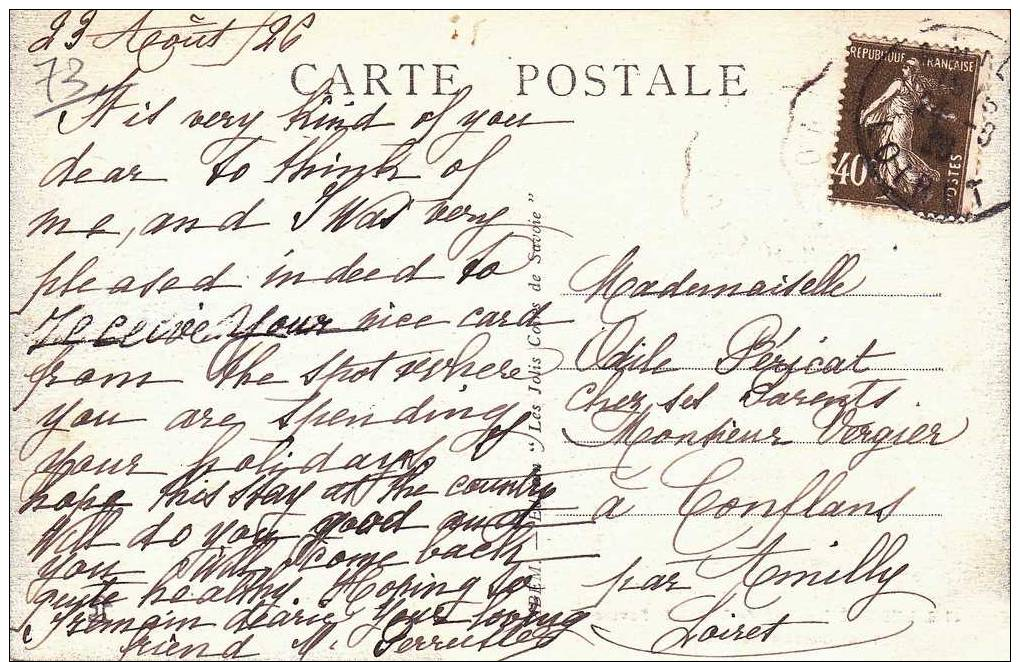 23 Août / 26
73
CARTE POSTALE
REPUBLIQUE FRANÇAISE
40
POSTES
It is very kind of you
dear to think of
me, and I was very
pleased indeed to
receive your nice card
from the spot where
you are spending
your holidays of
hope this stay at the country
will do you good and
you will come back
quite healthy. Hoping so
I remain dearie your loving
friend M.
" Les Jolis Coins de Savoie "
Mademoiselle
Odile Péricat
chez ses Parents
Monsieur Vergier
à Conflans
par Amilly
Loiret